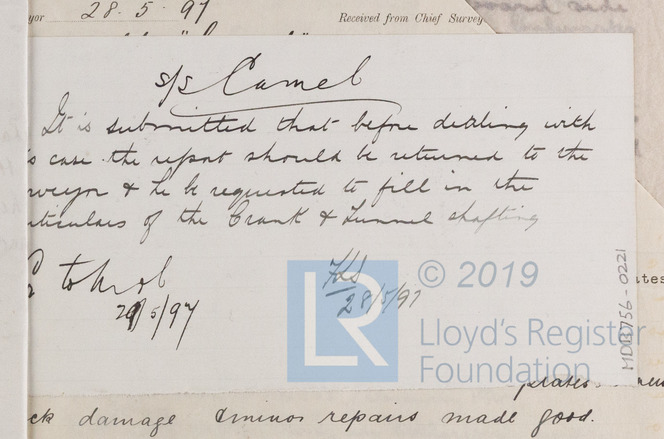 yor 28 · 5 · 97 Received from Chief Survey
s/s Camel
It is submitted that before dealing with
s case the report should be returned to the
rveyor & he be requested to fill in the
rticulars of the Crank & Tunnel shafting
29/5/97
28/5/97
© 2019
LR
Lloyd's Register
Foundation
MDB756-0221
ates
plates
ck damage & minor repairs made good.